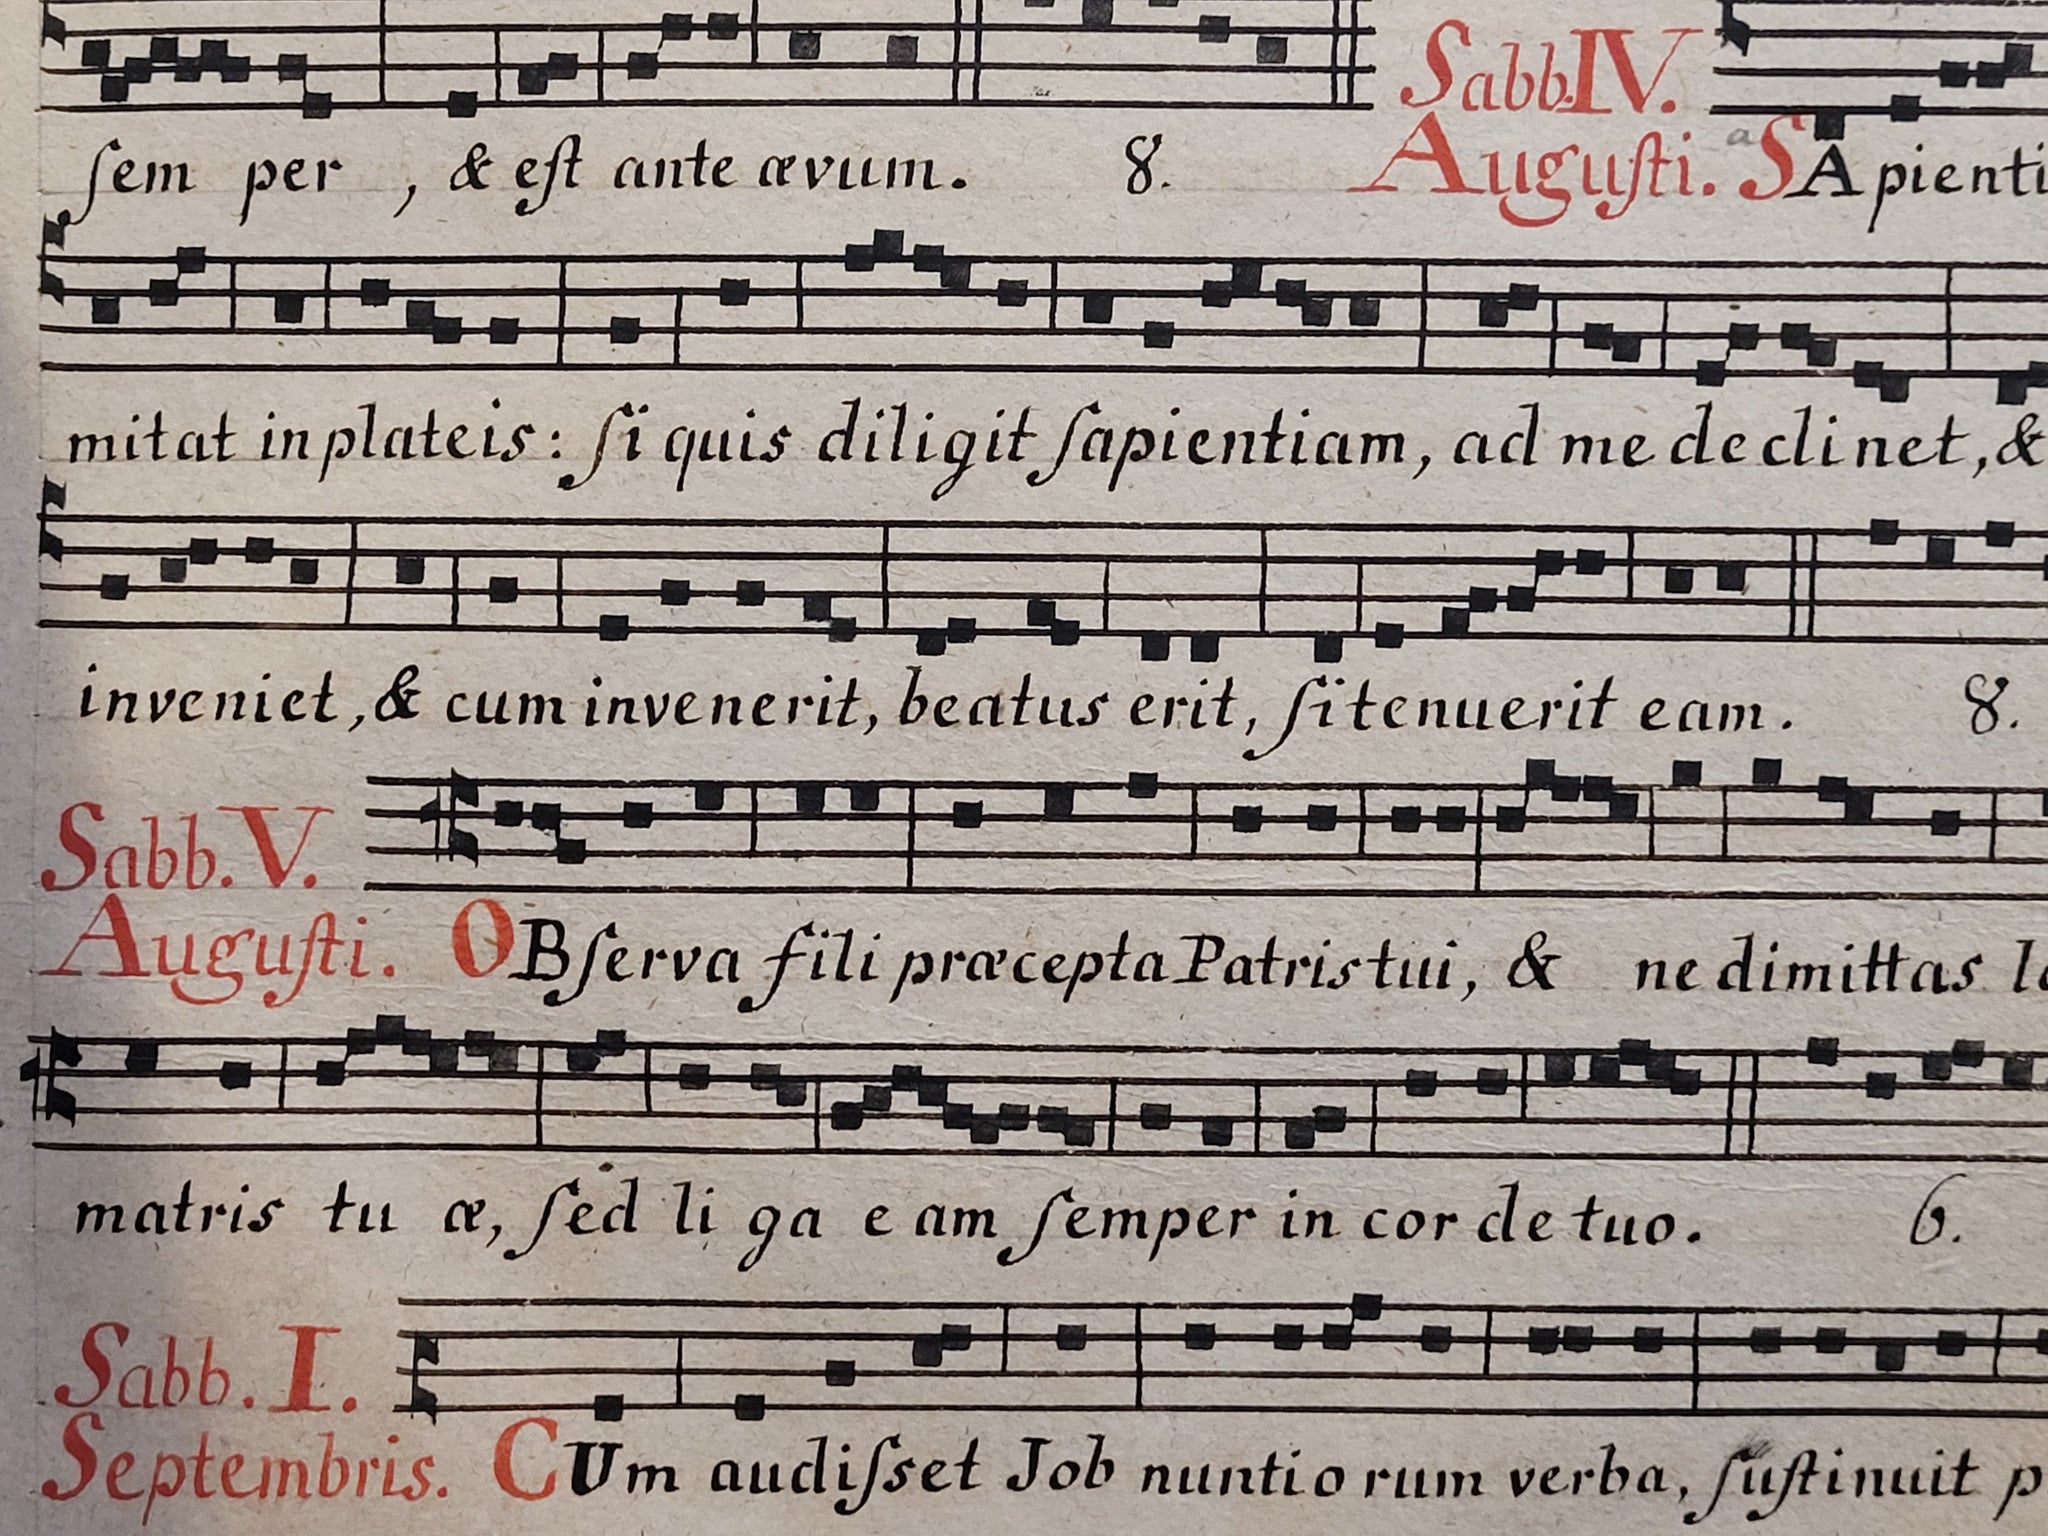 ſem per , & eſt ante ævum. 8. Sabb. IV.
Auguſti. SApienti
mitat in plateis: ſi quis diligit ſapientiam, ad me declinet, &
inveniet, & cum invenerit, beatus erit, ſi tenuerit eam. 8.
Sabb. V.
Auguſti. OBſerva fili præcepta Patris tui, & ne dimittas
matris tu æ, ſed li ga e am ſemper in cor de tuo. 6.
Sabb. I.
Septembris. CUm audiſset Job nuntio rum verba, ſuſtinuit p